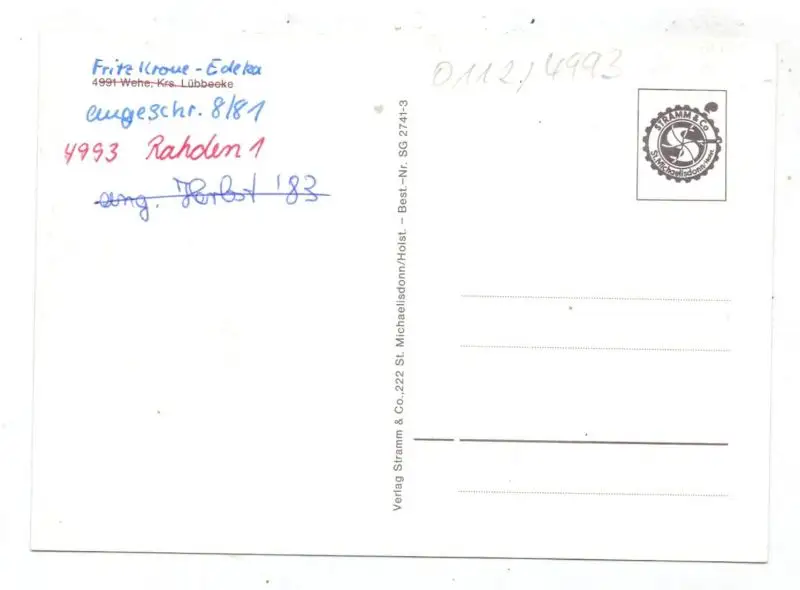 Fritz Krone - Edeka
4991 Wehe, Krs. Lübbecke
angeschr. 8/81
4993 Rahden 1
ang. Herbst '83
0112/4993
STRAMM & Co
St. Michaelisdonn/Holst.
Verlag Stramm & Co., 222 St. Michaelisdonn/Holst. – Best.-Nr. SG 2741-3